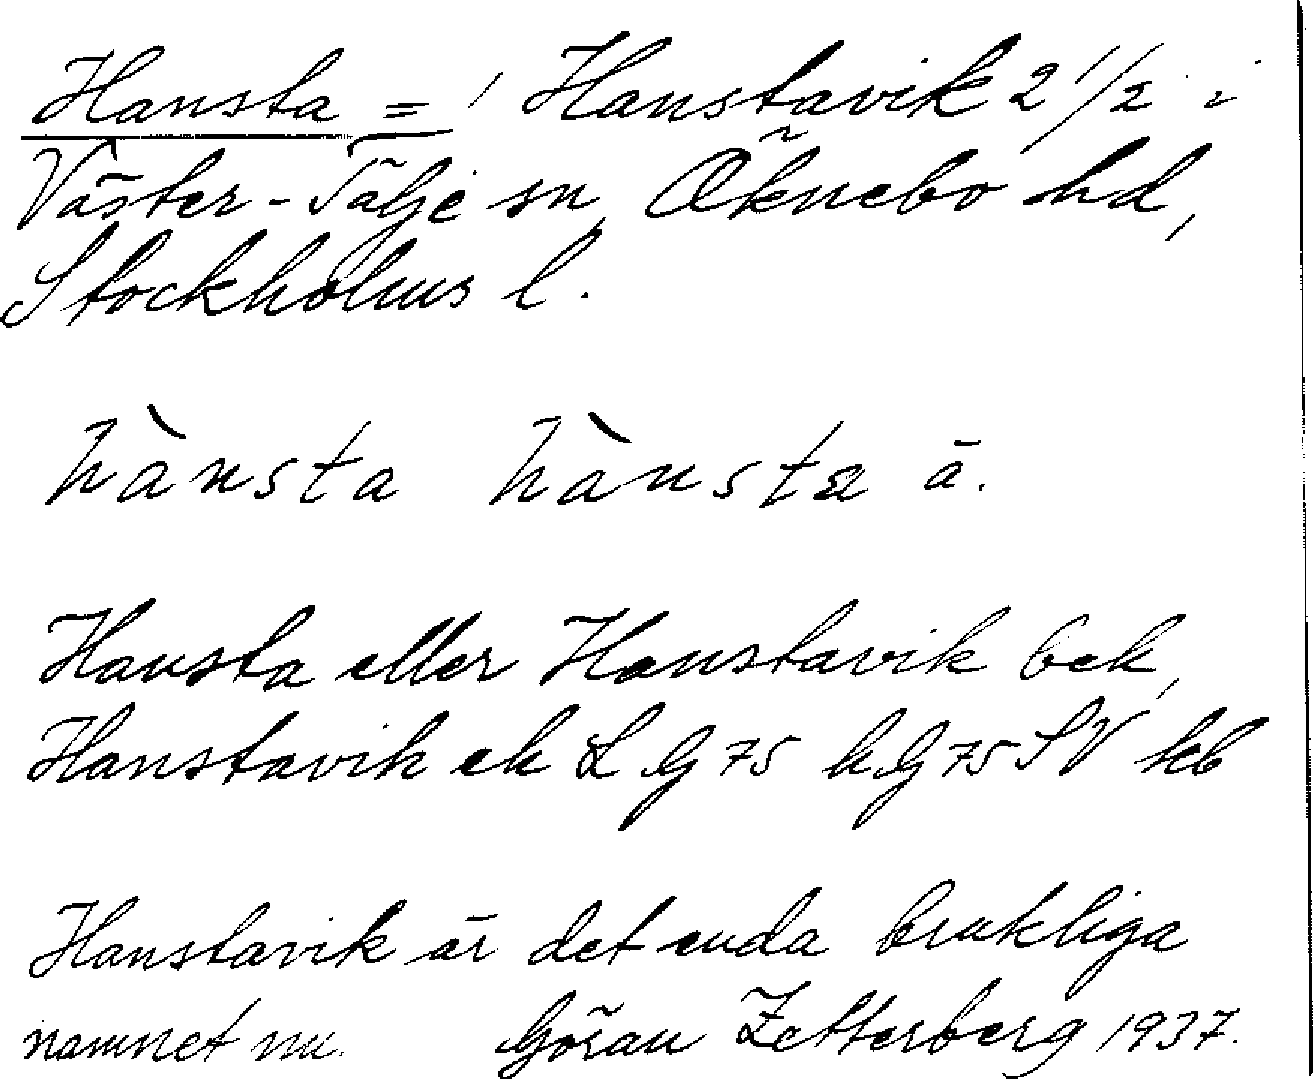 Hansta = Hanstavik 2 1/2 i
Väster-Tälje sn, Öknebo hd,
Stockholms l.
hànsta hànstɑ ä.
Hansta eller Hanstavik bek,
Hanstavik ek L.G 75 h.G 75 SV kb
Hanstavik är det enda brukliga
namnet nu. Göran Zetterberg 1937.